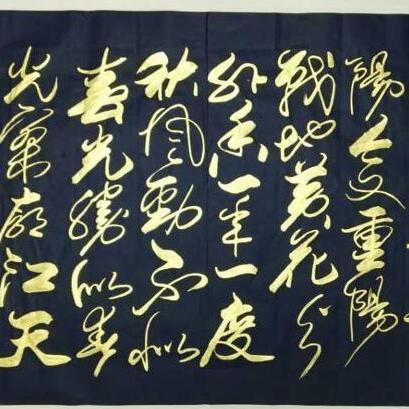 陽今又重陽
戰地黄花分
外香一年一度
秋風勁不似
春光勝似春
光寥廓江天